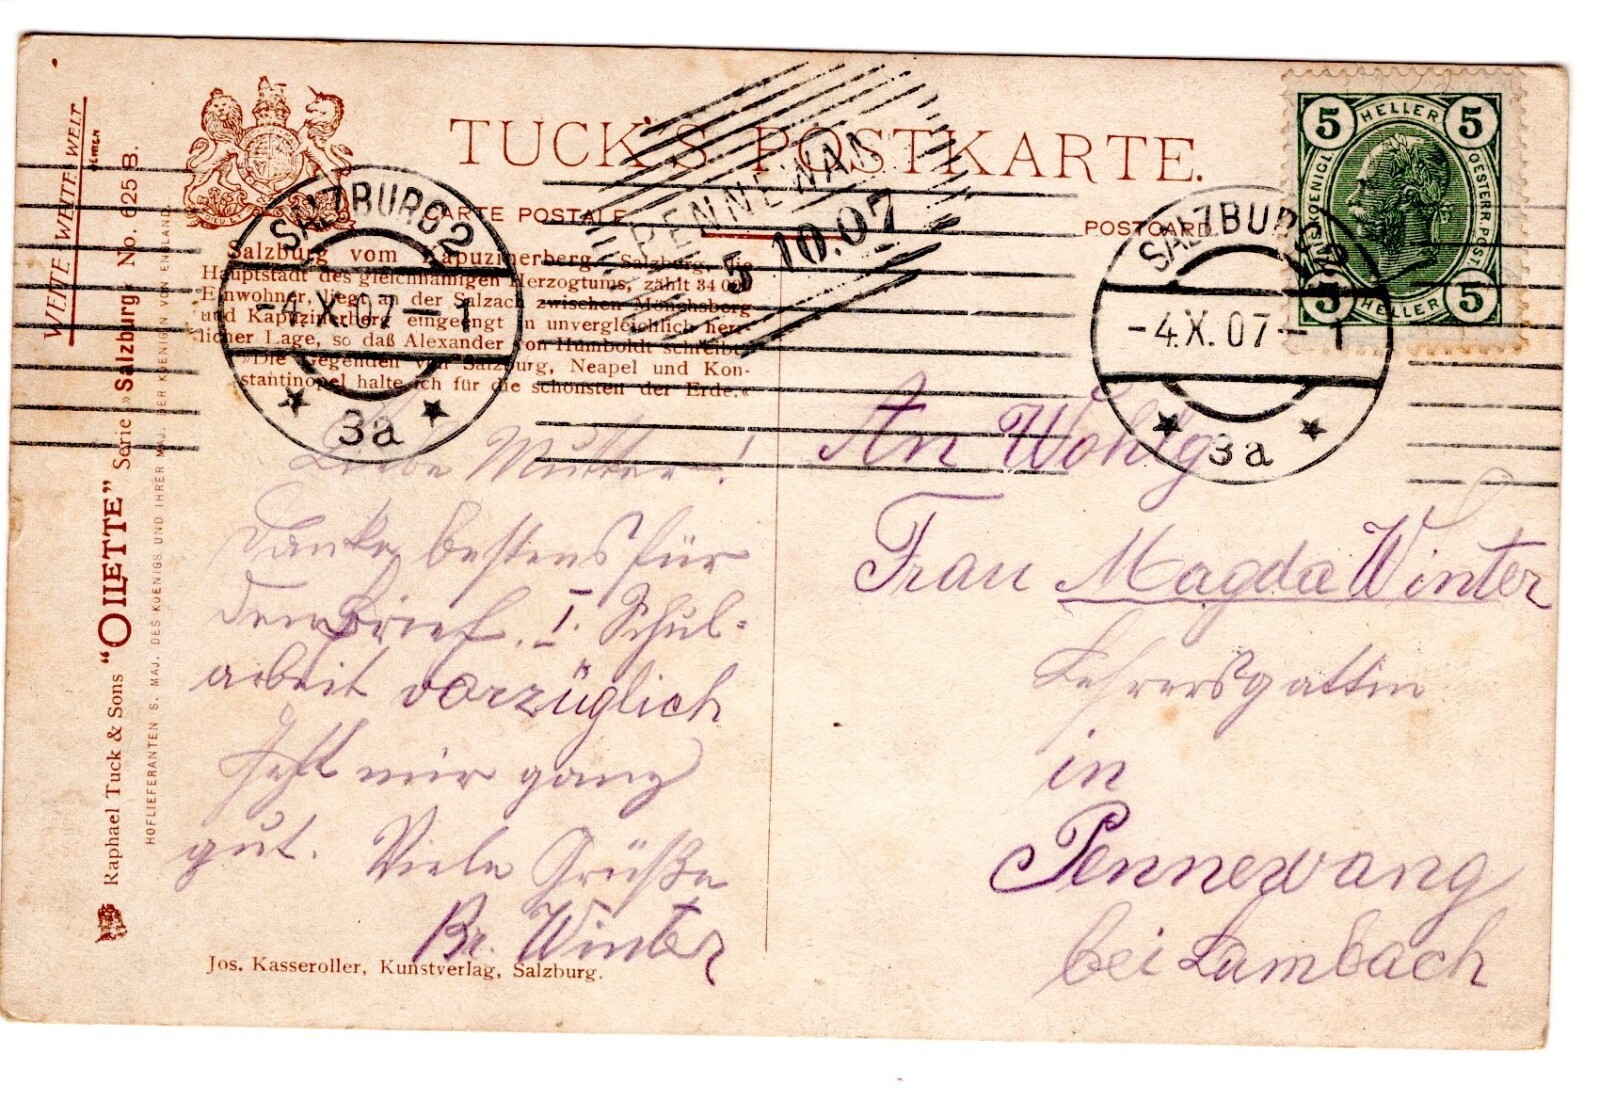 TUCK'S POSTKARTE.
CARTE POSTALE.
POSTCARD.
WEITE WEITE WELT
Raphael Tuck & Sons “OILETTE” Serie »Salzburg« No. 625 B.
HOFLIEFERANTEN S. MAJ. DES KOENIGS UND IHRER MAJ. DER KOENIGIN VON ENGLAND.
Salzburg vom Kapuzinerberg. Salzburg, die
Hauptstadt des gleichnamigen Herzogtums, zählt 34 000
Einwohner, liegt an der Salzach zwischen Mönchsberg
und Kapuzinerberg eingeengt in unvergleichlich herr-
licher Lage, so daß Alexander von Humboldt schreibt:
»Die Gegenden von Salzburg, Neapel und Kon-
stantinopel halte ich für die schönsten der Erde.«
SALZBURG 2
-4.X.07-1
3a
PENNEWANG
5 10.07
SALZBURG 2
-4.X.07-1
3a
5 HELLER 5
KAIS. KOENIGL. OESTERR. POST
5 HELLER 5
Liebe Mutter!
Danke bestens für
den Brief. I. Schul-
arbeit vorzüglich
Geht mir ganz
gut. Viele Grüße
Br. Winter
Jos. Kasseroller, Kunstverlag, Salzburg.
An Wohlg
Frau Magda Winter
Lehrersgattin
in
Pennewang
bei Lambach